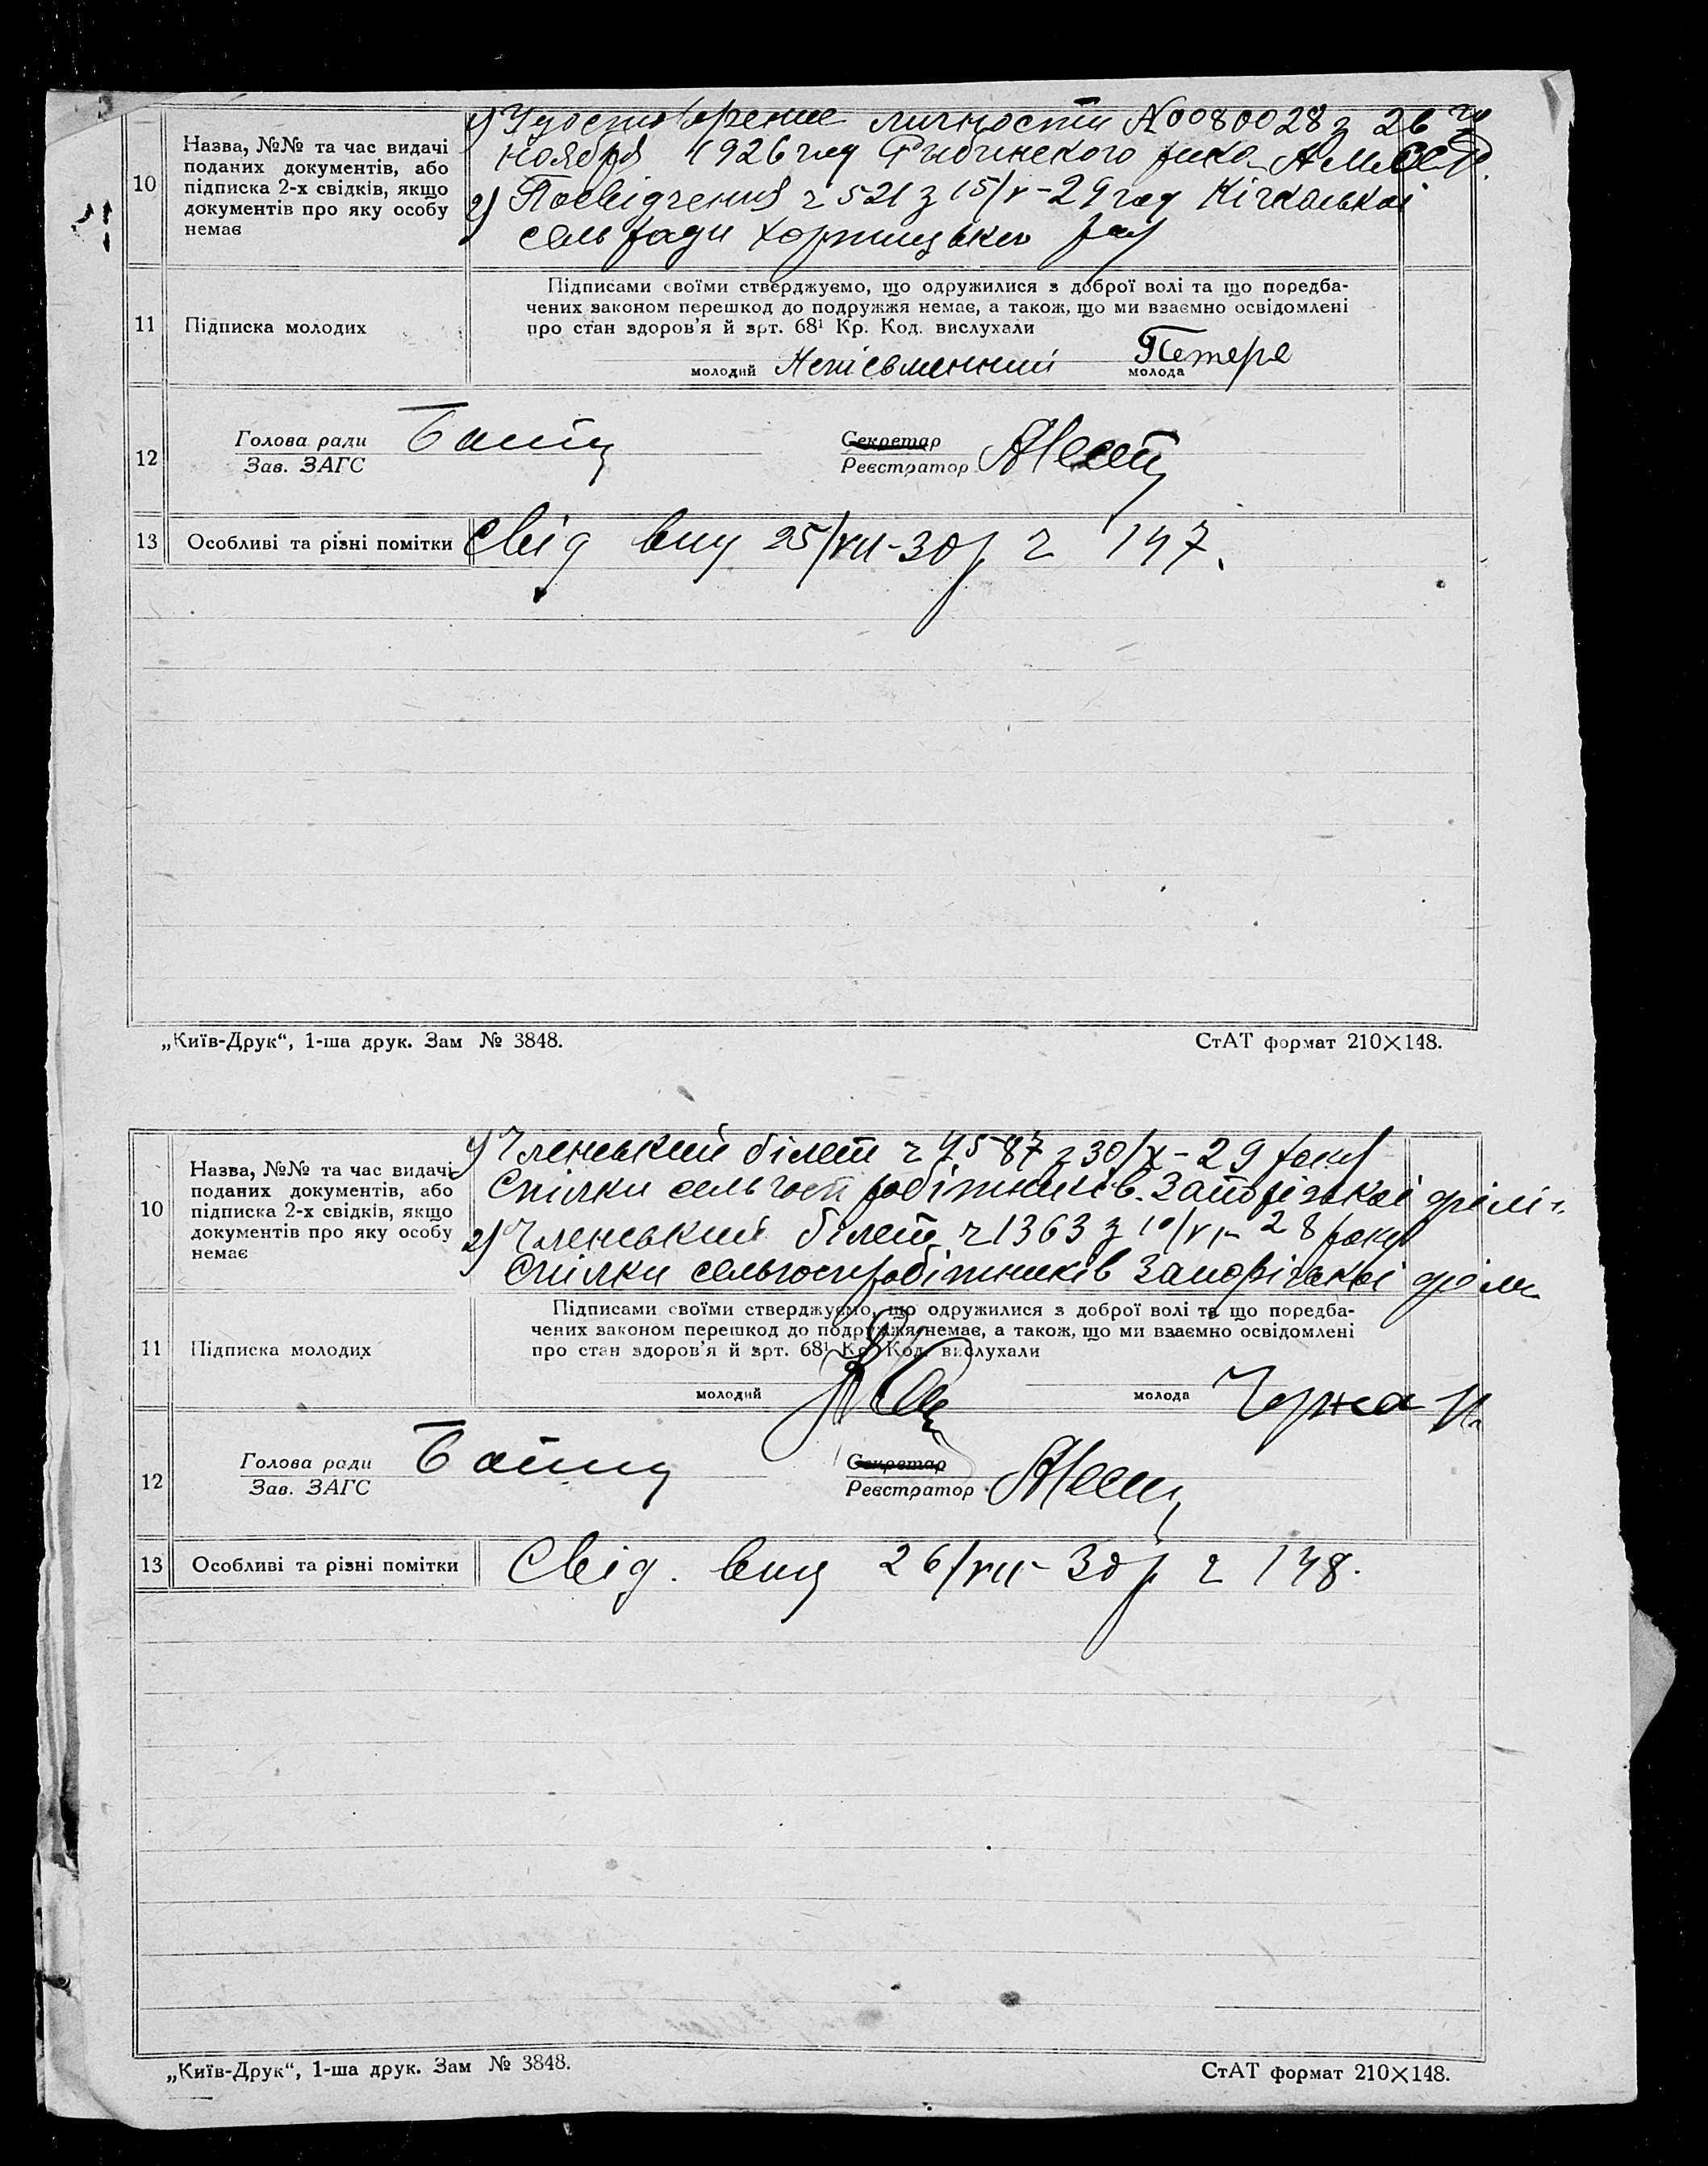 10
Назва, №№ та час видачі
поданих документів, або
підписка 2-х свідків, якщо
документів про яку особу
немає
1) Удостоверение личности №0080028 з 26 го
ноября 1926 год Рибинского рика АМССР.
2) Посвідчення ч 521 з 15/V-29 год Кічкаської
сельради Хортицького рай
11
Підписка молодих
Підписами своїми стверджуємо, що одружилися з доброї волі та що передба-
чених законом перешкод до подружжя немає, а також, що ми взаємно освідомлені
про стан здоров'я й арт. 68¹ Кр. Код. вислухали
молодий Непісьменний молода Петере
12
Голова ради
Зав. ЗАГС
Секретар
Реєстратор
13 Особливі та різні помітки Свід вид 25/VII-30 р ч 147.
„Київ-Друк“, 1-ша друк. Зам № 3848. СтАТ формат 210×148.
10
Назва, №№ та час видачі
поданих документів, або
підписка 2-х свідків, якщо
документів про яку особу
немає
1) Членський білет ч 4587 з 30/X-29 року
Спілки сельгосп робітників Запорізької філії
2) Членський білет ч 1363 з 10/VI-28 року
Спілки сельгоспробітників Запорізької філ
11
Підписка молодих
Підписами своїми стверджуємо, що одружилися з доброї волі та що передба-
чених законом перешкод до подружжя немає, а також, що ми взаємно освідомлені
про стан здоров'я й арт. 68¹ Кр. Код. вислухали
молодий молода
12
Голова ради
Зав. ЗАГС
Секретар
Реєстратор
13 Особливі та різні помітки Свід. вид 26/VII-30 р ч 148.
„Київ-Друк“, 1-ша друк. Зам № 3848. СтАТ формат 210×148.